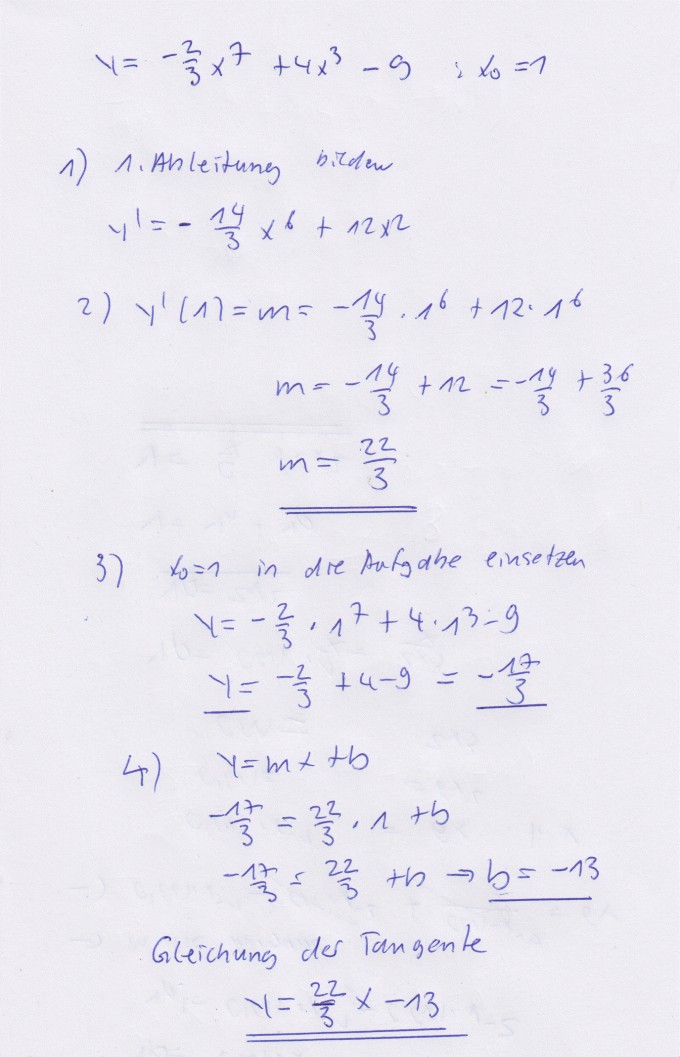 y = -2/3 x^7 + 4x^3 - 9 ; x₀ = 1
1) 1. Ableitung bilden
y' = - 14/3 x^6 + 12x^2
2) y'(1) = m = -14/3 · 1^6 + 12 · 1^6
m = -14/3 + 12 = -14/3 + 36/3
m = 22/3
3) x₀=1 in die Aufgabe einsetzen
y = -2/3 · 1^7 + 4 · 1^3 - 9
y = -2/3 + 4 - 9 = -17/3
4) y = mx + b
-17/3 = 22/3 · 1 + b
-17/3 = 22/3 + b ⇒ b = -13
Gleichung der Tangente
y = 22/3 x - 13